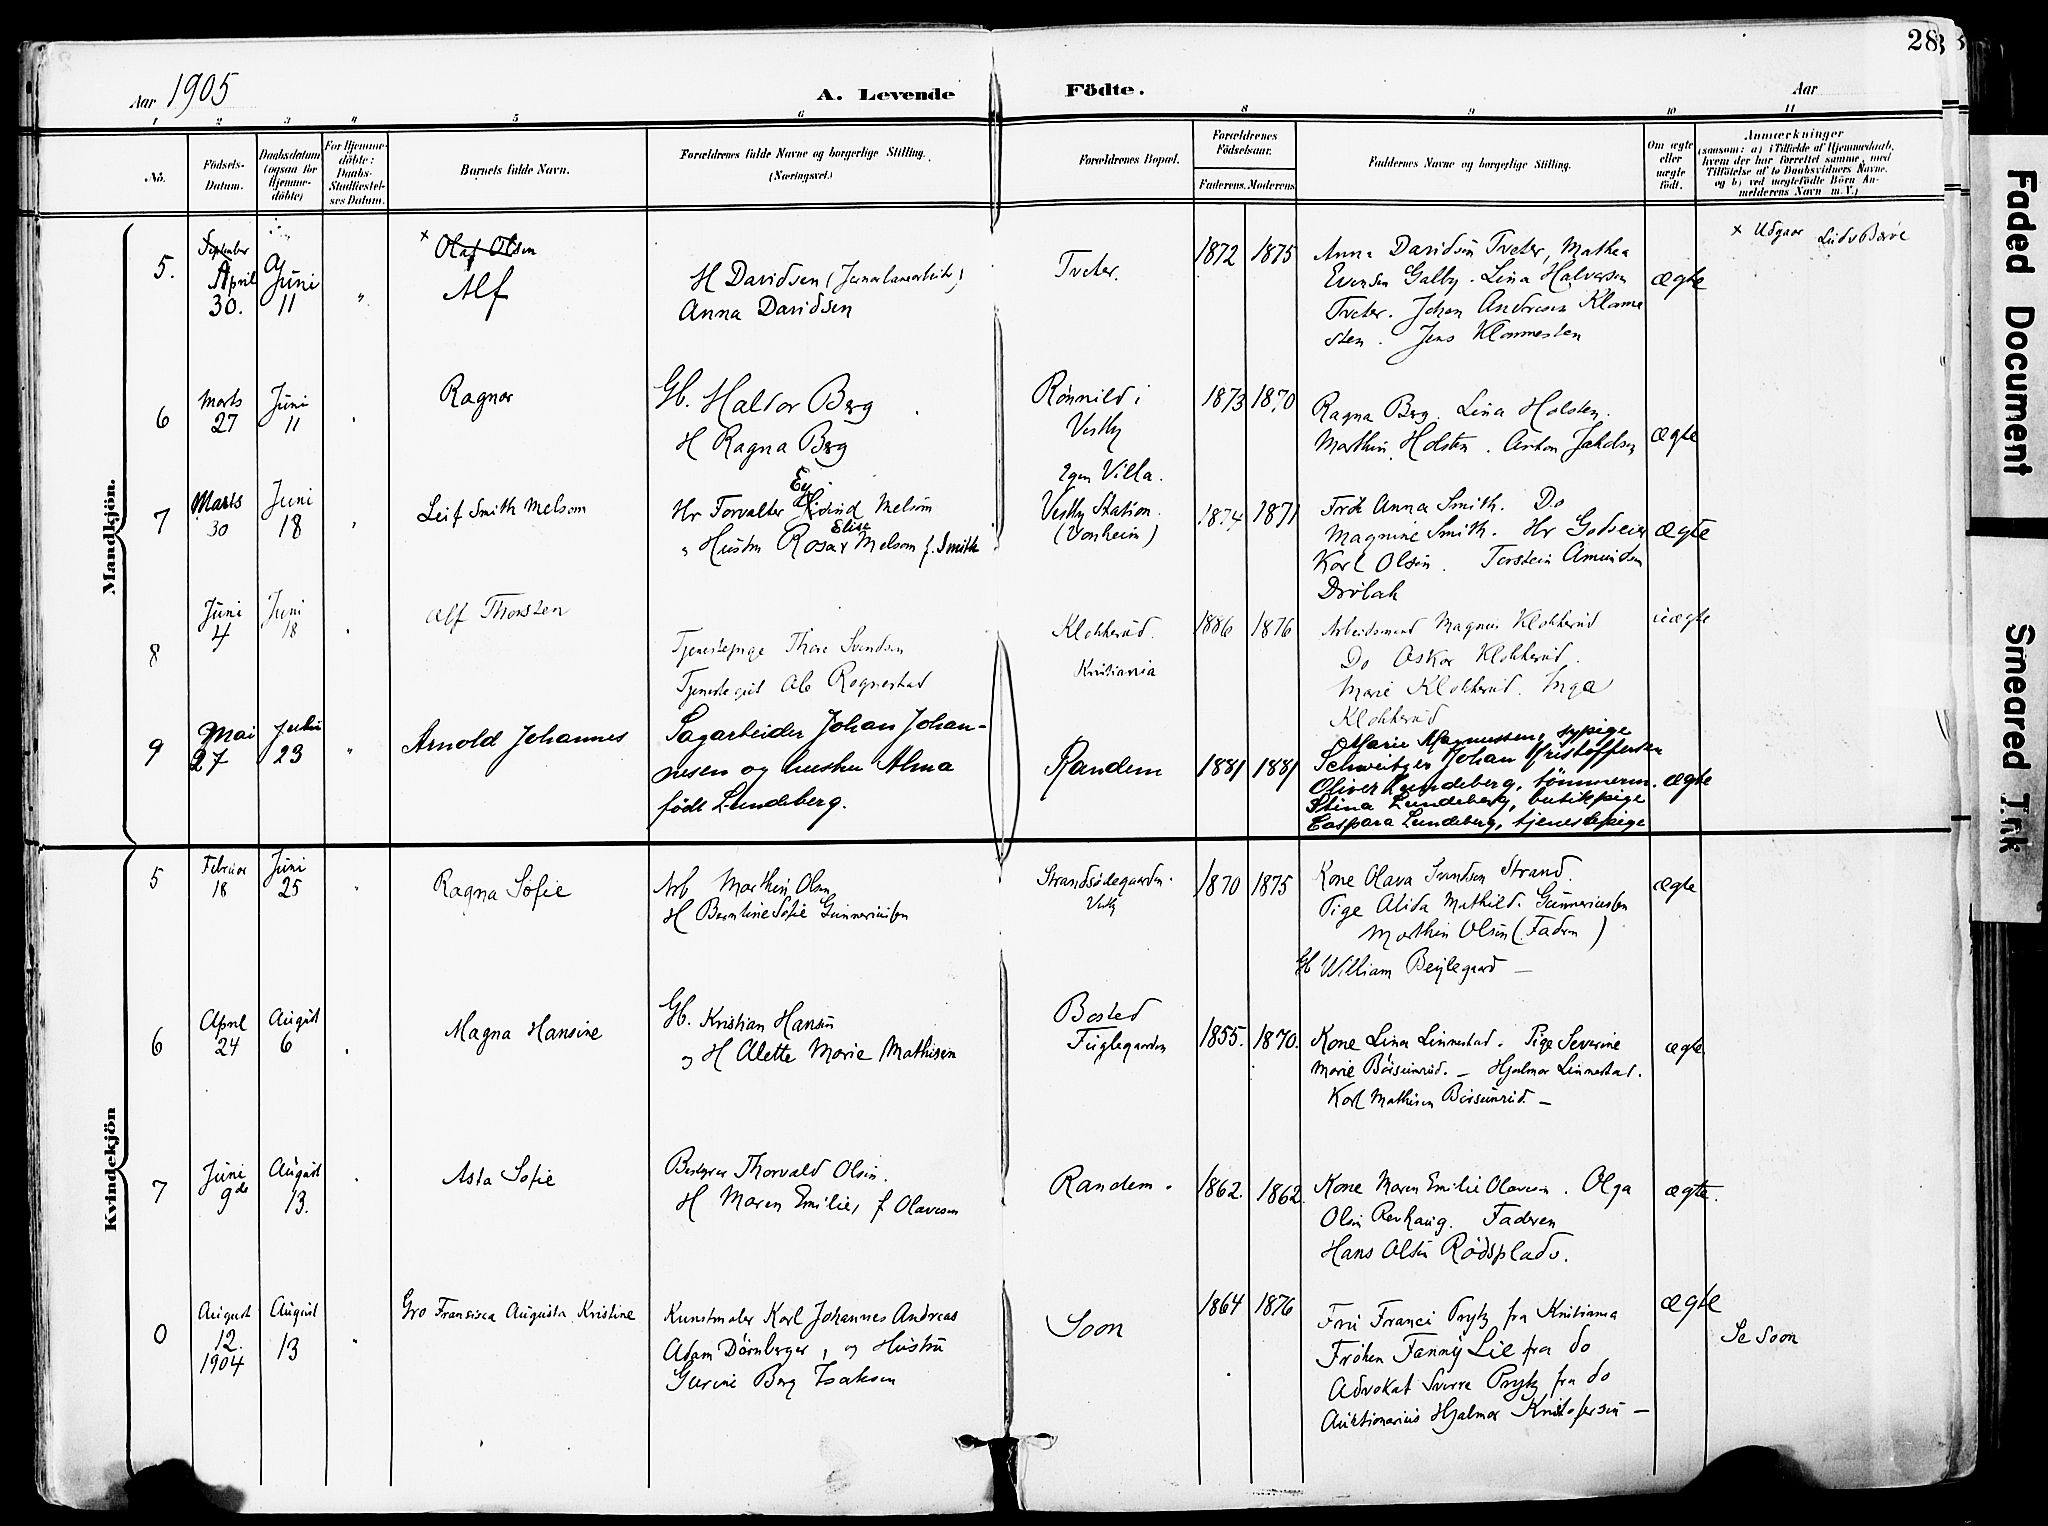 28
Aar 1905
A. Levende Födte.
Aar
1 2 3 4 5 6 8 9 10 11
No.
Födsels-
Datum.
Daabsdatum
(ogsaa for
Hjemme-
döbte)
For Hjemme-
döbte:
Daabs-
Stadfæstel-
ses Datum.
Barnets fulde Navn.
Forældrenes fulde Navne og borgerlige Stilling.
(Næringsvei.)
Forældrenes Bopæl.
Forældrenes
Födselsaar.
Faderens. Moderens.
Faddernes Navne og borgerlige Stilling.
Om ægte
eller
uægte
födt.
Anmærkninger
(saasom: a) i Tilfælde af Hjemmedaab,
hvem der har forrettet samme, med
Tilföielse af to Daabsvidners Navne.
og b) ved uægtefödte Börn An-
melderens Navn m. V.)
Mandkjön.
5.
September
April
30.
Juni
11
"
x Olaf Olsen
Alf
H Davidsen
Anna Davidsen
Tveter.
1872 1875
Anna Davidsen Tveter, Mathea
Evensen Galby. Lina Halvorsen
Tveter. Johan Andresen Klomme
sten. Jens Klommesten
ægte
x Udgaar
6
Marts
27
Juni
11
Ragnar
Gb. Haldor Berg
H Ragna Berg
Rönnild i
Vestby
egen Villa.
1873 1870
Ragna Berg. Lina Holsten.
Marthin Holsten. Anton Jakobsen
ægte
7
Marts
30
Juni
18
Leif Smith Melsom
Hr Forvalter Eivind Melsom
Elise
" Hustru Rosa Melsom f. Smith
Vestby Station.
(Vonheim)
1874 1871
Frök Anna Smith. Do
Magnine Smith. Hr Godseier
Karl Olsen. Torstein Amundsen
Dröbak
ægte
8
Juni
4
Juni
18
Alf Thorsten
Tjenestepige Thora Svendsen
Tjenestegut Ole Rognestad
Klokkerud.
Kristiania
1886 1876
Arbeidsmand Magnus Klokkerud
Do Oskar Klokkerud.
Marie Klokkerud. Inga
Klokkerud
uægte
9
Mai
27
23
"
Arnold Johannes
Sagarbeider Johan Johan-
nesen og hustru Alma
födt Lundeberg.
Randem
1881 1881
Marie Magnussen, sypige
Schweitzer Johan Kristoffersen
Oliver Lundeberg, tömmerm.
Stina Lundeberg, butikpige
Caspara Lundeberg, tjenestepige
ægte
Kvindekjön
5
Februar
18
Juni
25
Ragna Sofie
Arb Marthin Olsen
H Berntine Sofie Gunneriusen
Strandsödegaarden.
Vestby
1870 1875
Kone Olava Svendsen Strand.
Pige Alida Mathilde Gunneriusen
Marthin Olsen (Faderen)
Gb William Berglegaard —
ægte
6
April
24
August
6
Magna Hansine
Gb. Kristian Hansen
og H Alette Marie Mathisen
Bosted
Fuglegaarden
1855. 1870.
Kone Lina Linnestad. Pige Severine
Marie Börsumrud. — Hjalmar Linnestad.
Karl Mathisen Börsumrud. —
ægte
7
Juni
9de
August
13.
Asta Sofie
Bestyrer Thorvald Olsen.
H Maren Emilie, f Olavesen
Randem.
1862. 1862
Kone Maren Emilie Olavesen. Olga
Olsen Revhaug. Faderen
Hans Olsen Rödsplads.
ægte.
0
August
12.
1904
August
13
Gro Fransisca Augusta Kristine
Kunstmaler Karl Johannes Andreas
Adam Dörnberger, og Hustru
Gurine Berg Isaksen
Soon
1864 1876
Fru Franci Prytz fra Kristiania
Fröken Fanny Lie fra do
Advokat Sverre Prytz fra do
Auktionarius Hjalmar Kristofersen —
ægte
Se Soon
Faded Document
Smeared Ink